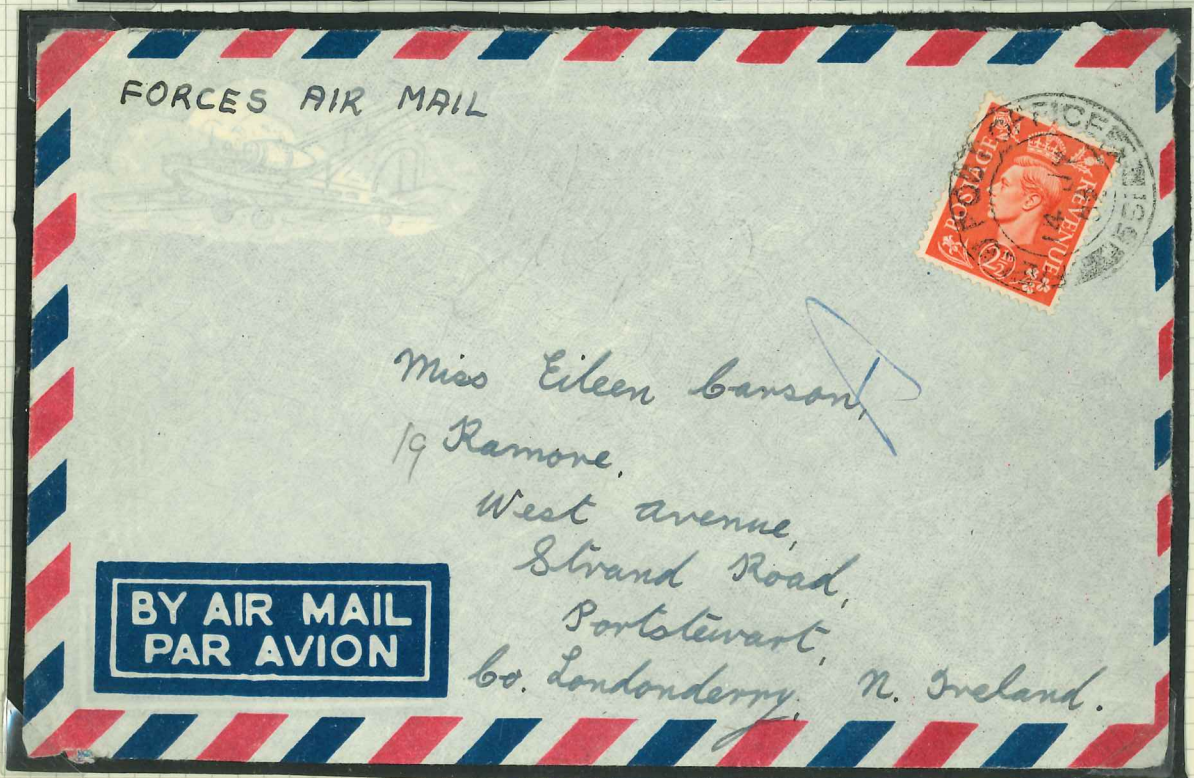 FORCES AIR MAIL
POSTAGE REVENUE
2½
14
Miss Eileen Carson,
19 Ramore,
West Avenue,
Strand Road,
Portstewart,
Co. Londonderry, N. Ireland.
BY AIR MAIL
PAR AVION